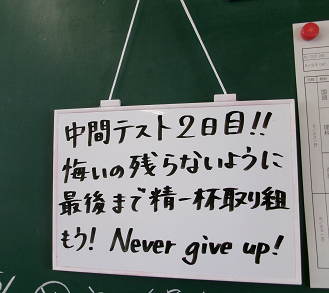 中間テスト2日目!!
悔いの残らないように
最後まで精一杯取り組
もう! Never give up!